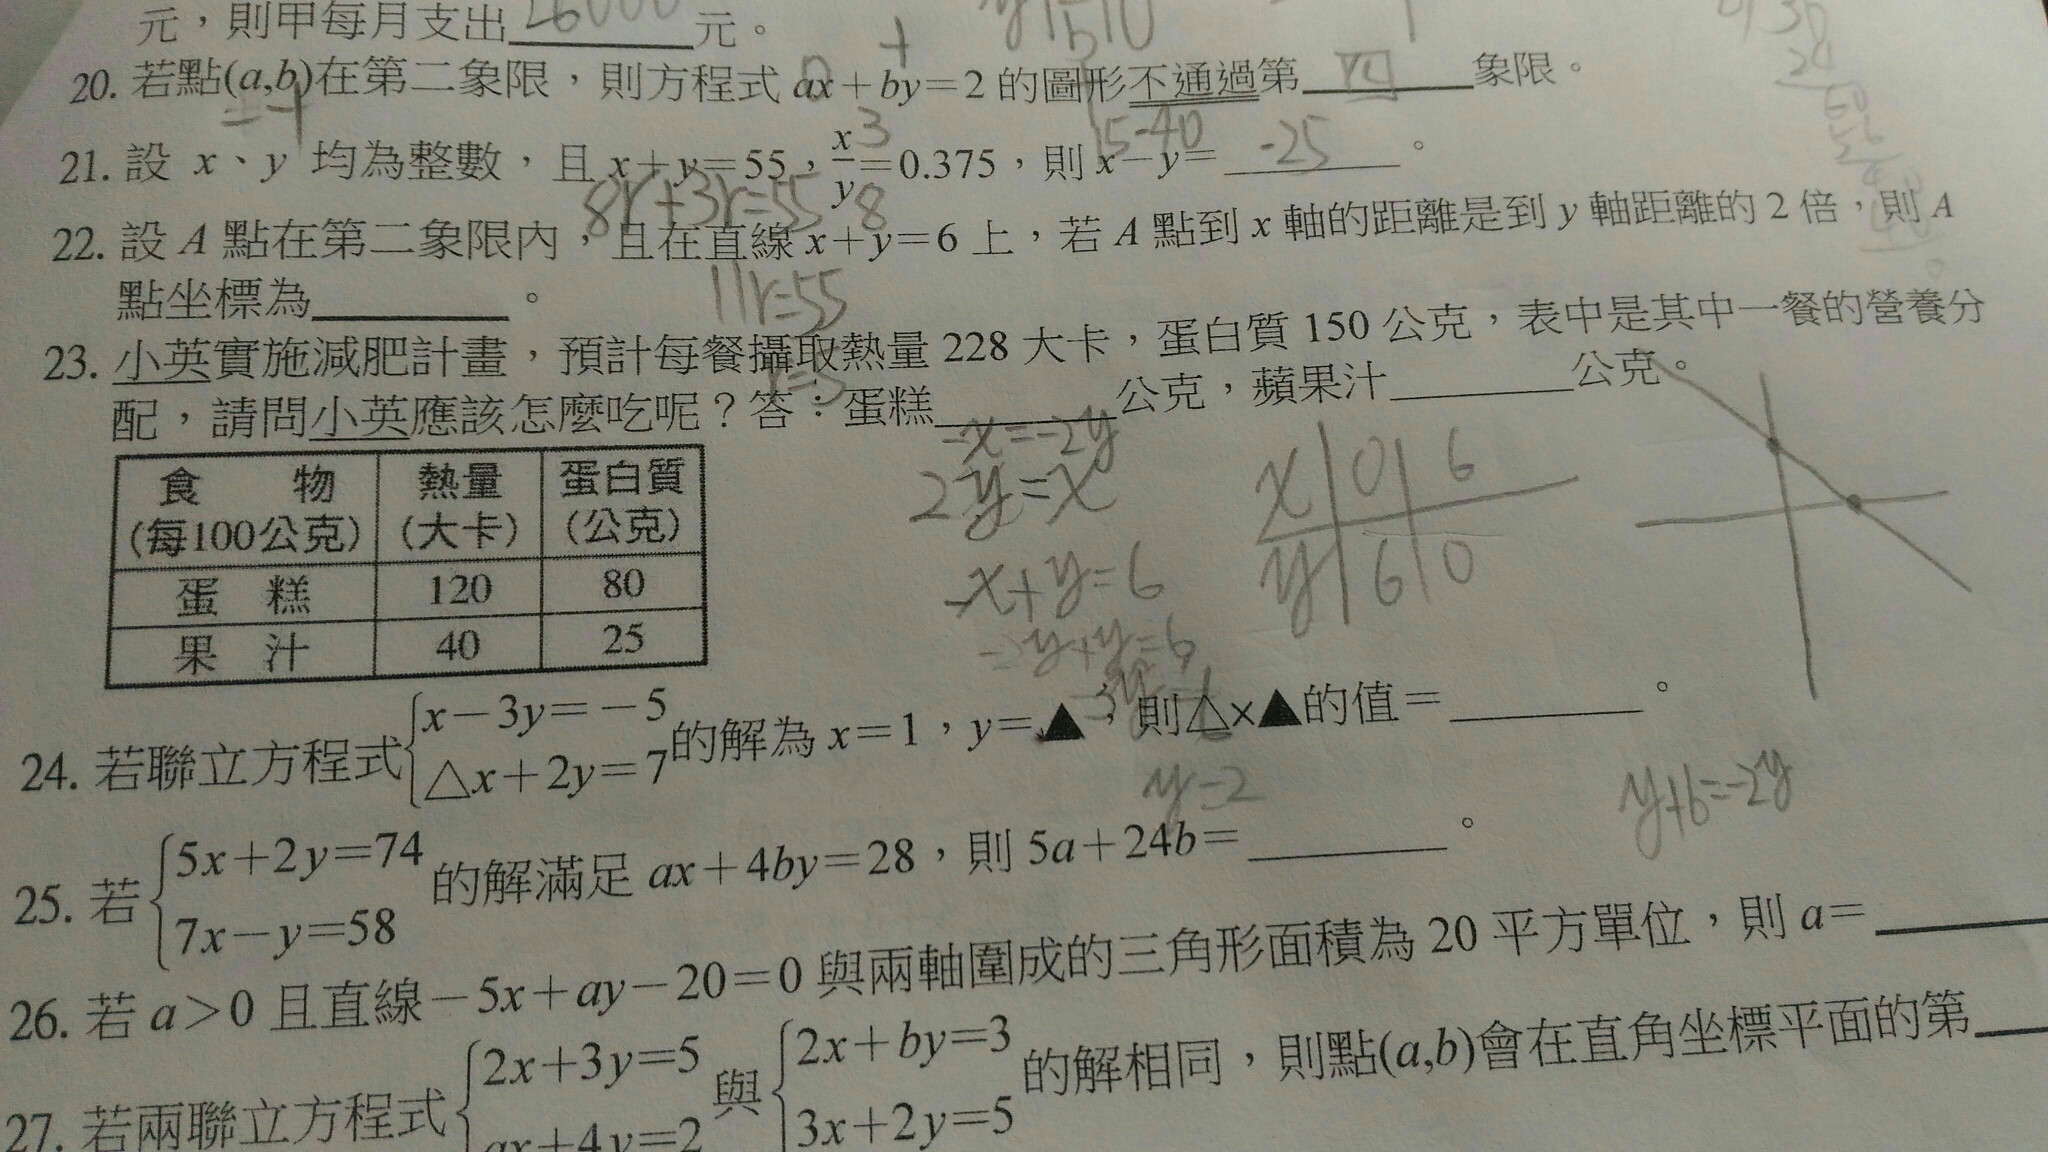 元，則甲每月支出26000元。
20. 若點(a,b)在第二象限，則方程式 ax+by=2 的圖形不通過第 四 象限。
- +
21. 設 x、y 均為整數，且 x+y=55，x/y=0.375，則 x-y= -25 。
3
8
15-40
8r+3r=55
22. 設 A 點在第二象限內，且在直線 x+y=6 上，若 A 點到 x 軸的距離是到 y 軸距離的 2 倍，則 A
點坐標為 。
11r=55
23. 小英實施減肥計畫，預計每餐攝取熱量 228 大卡，蛋白質 150 公克，表中是其中一餐的營養分
配，請問小英應該怎麼吃呢？答：蛋糕 公克，蘋果汁 公克。
食 物 熱量 蛋白質
(每100公克) (大卡) (公克)
蛋 糕 120 80
果 汁 40 25
-x=-2y
2y=x
-x+y=6
-2y+y=6
x 0 6
y 6 0
24. 若聯立方程式{x-3y=-5 的解為 x=1，y=▲，則△×▲的值= 。
△x+2y=7
y=2
y+6=-2y
25. 若{5x+2y=74 的解滿足 ax+4by=28，則 5a+24b= 。
7x-y=58
26. 若 a>0 且直線-5x+ay-20=0 與兩軸圍成的三角形面積為 20 平方單位，則 a=
27. 若兩聯立方程式{2x+3y=5 與{2x+by=3 的解相同，則點(a,b)會在直角坐標平面的第
ax+4y=2 3x+2y=5